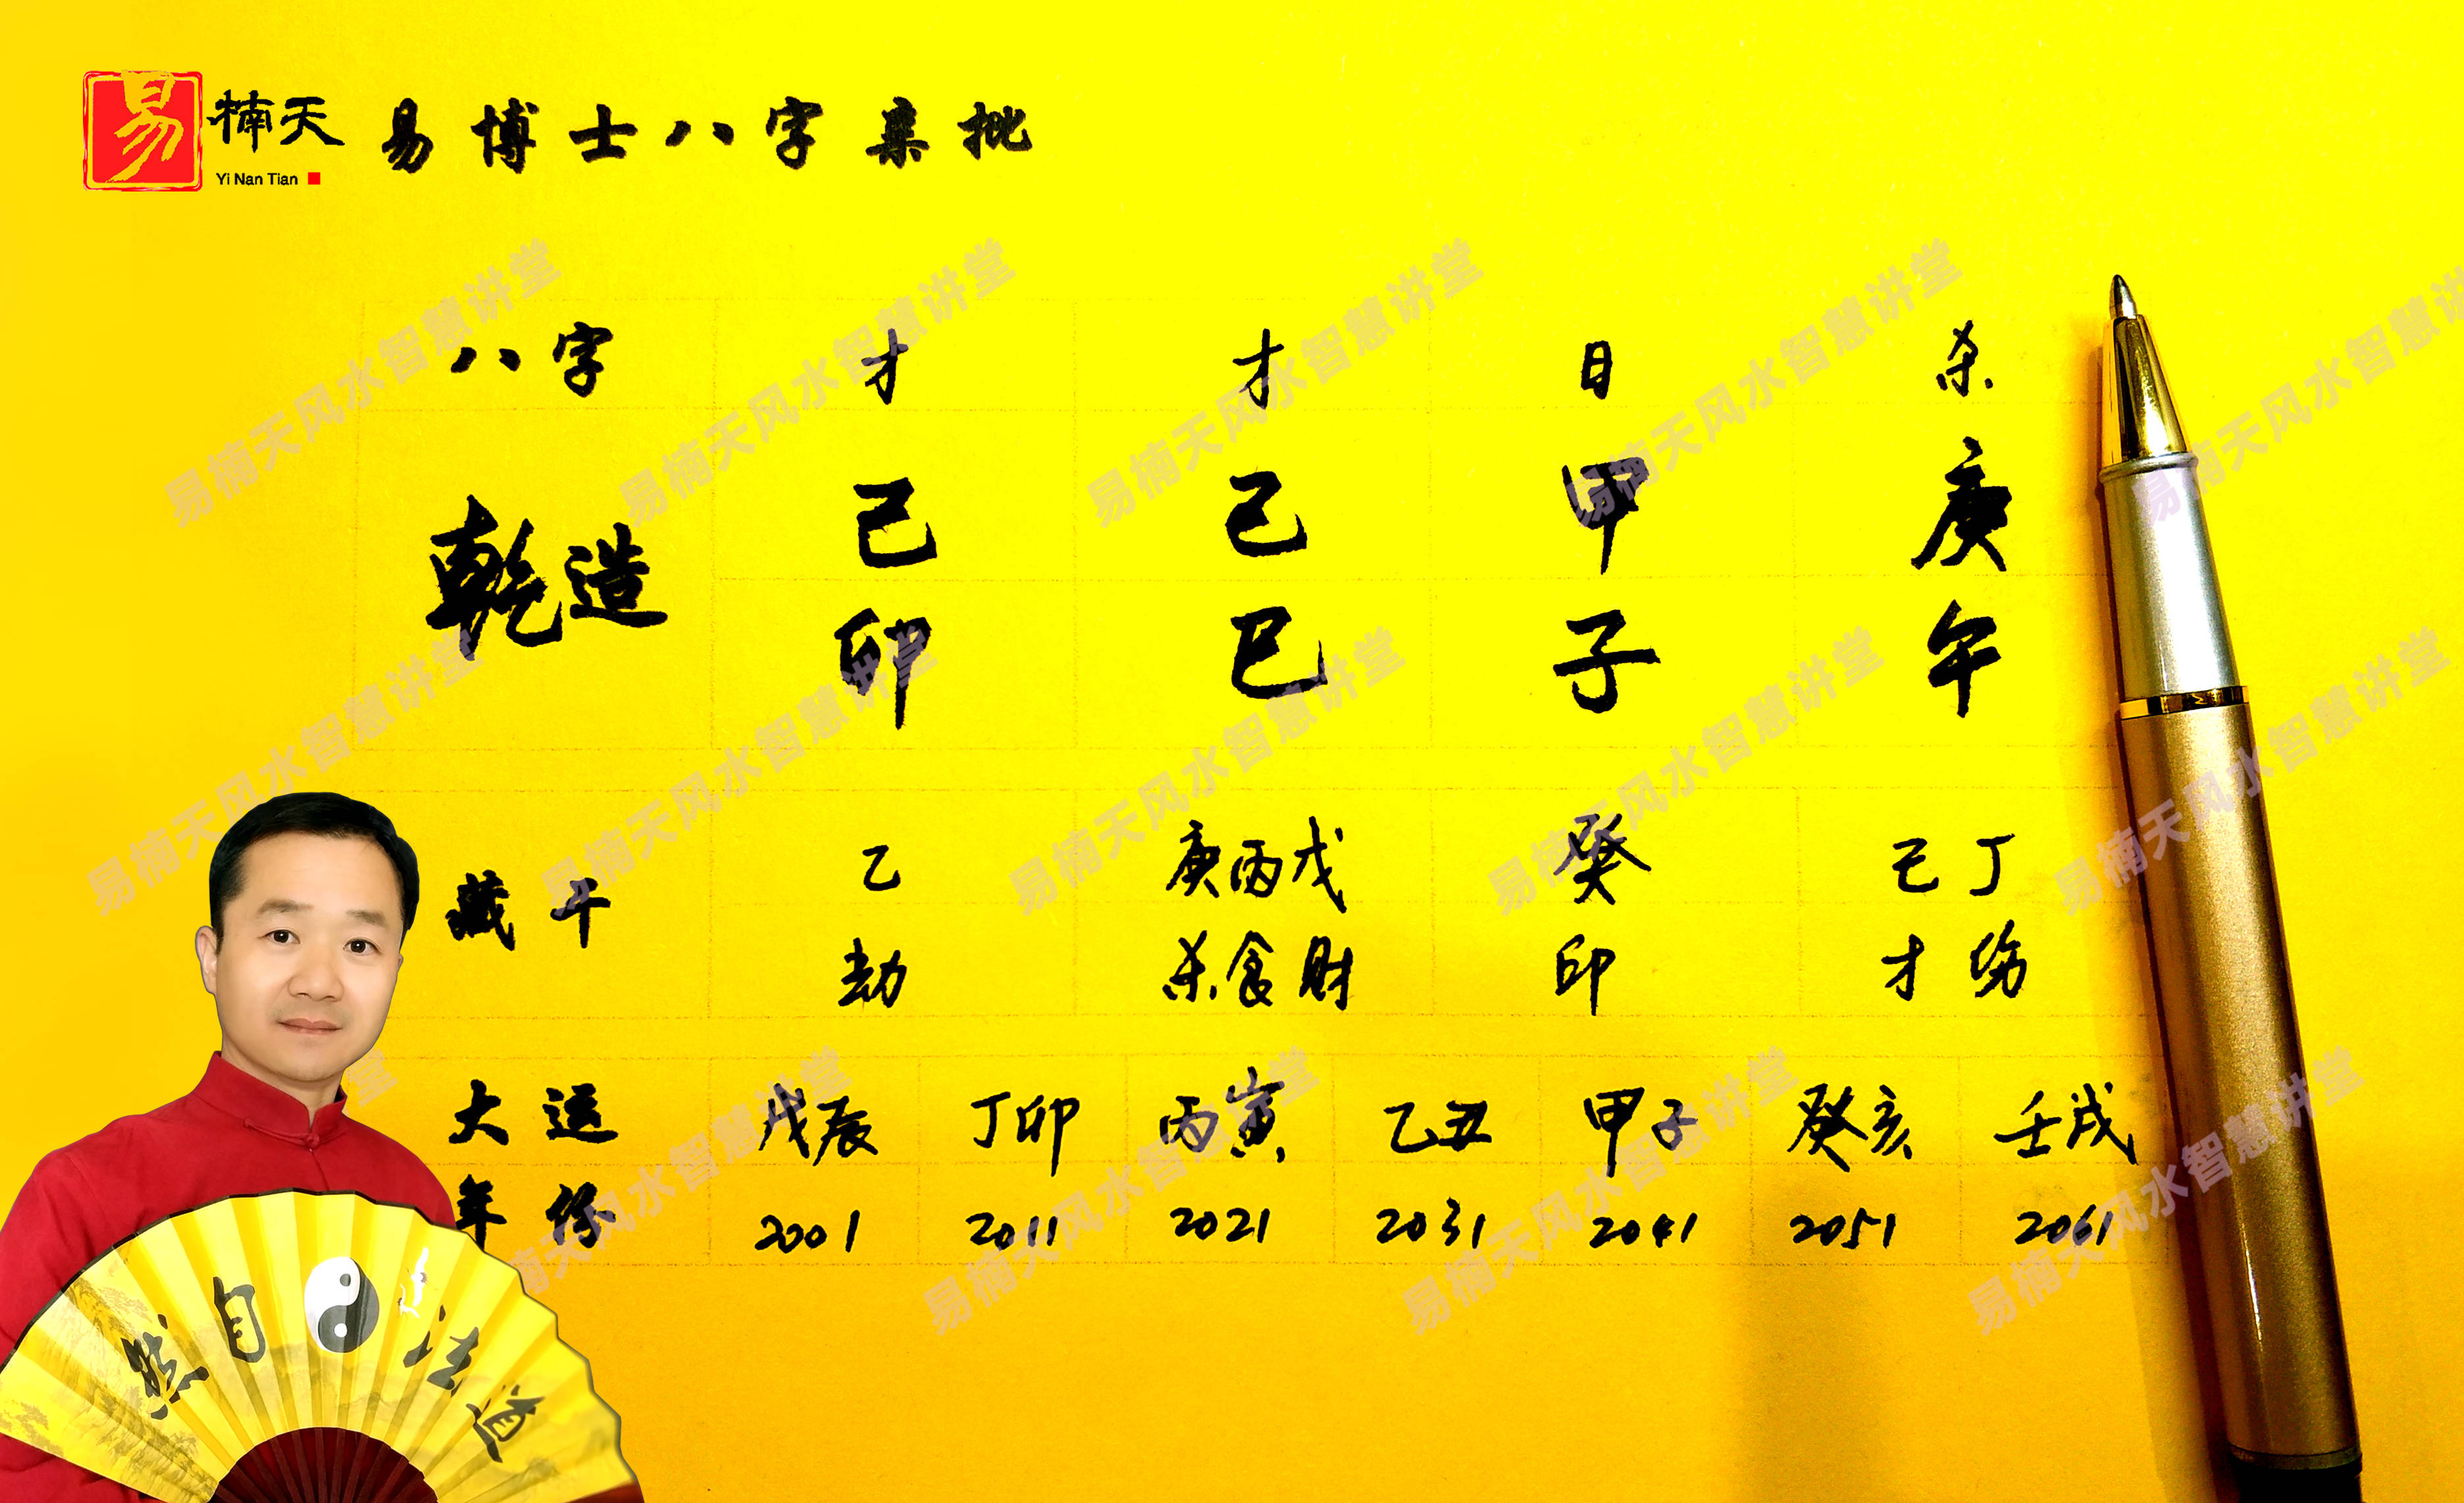 易 楠天 易博士八字集批
Yi Nan Tian
八字 才 才 日 杀
乾造 己 己 甲 庚
卯 巳 子 午
藏干 乙 庚丙戊 癸 己丁
劫 杀食财 印 才伤
大运 戊辰 丁卯 丙寅 乙丑 甲子 癸亥 壬戌
年份 2001 2011 2021 2031 2041 2051 2061
道法自然
易楠天风水智慧讲堂